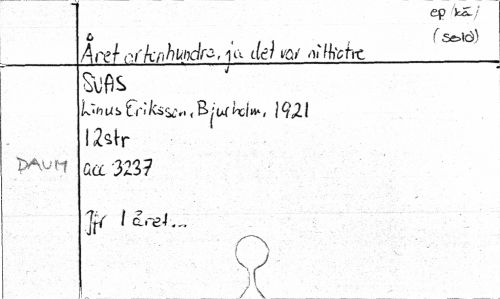 ep /kä/
(solo)
Året artonhundra, ja det var nittiotre
SVAS
Linus Eriksson, Bjurholm, 1921
12str
DAUM acc 3237
Jfr I året...